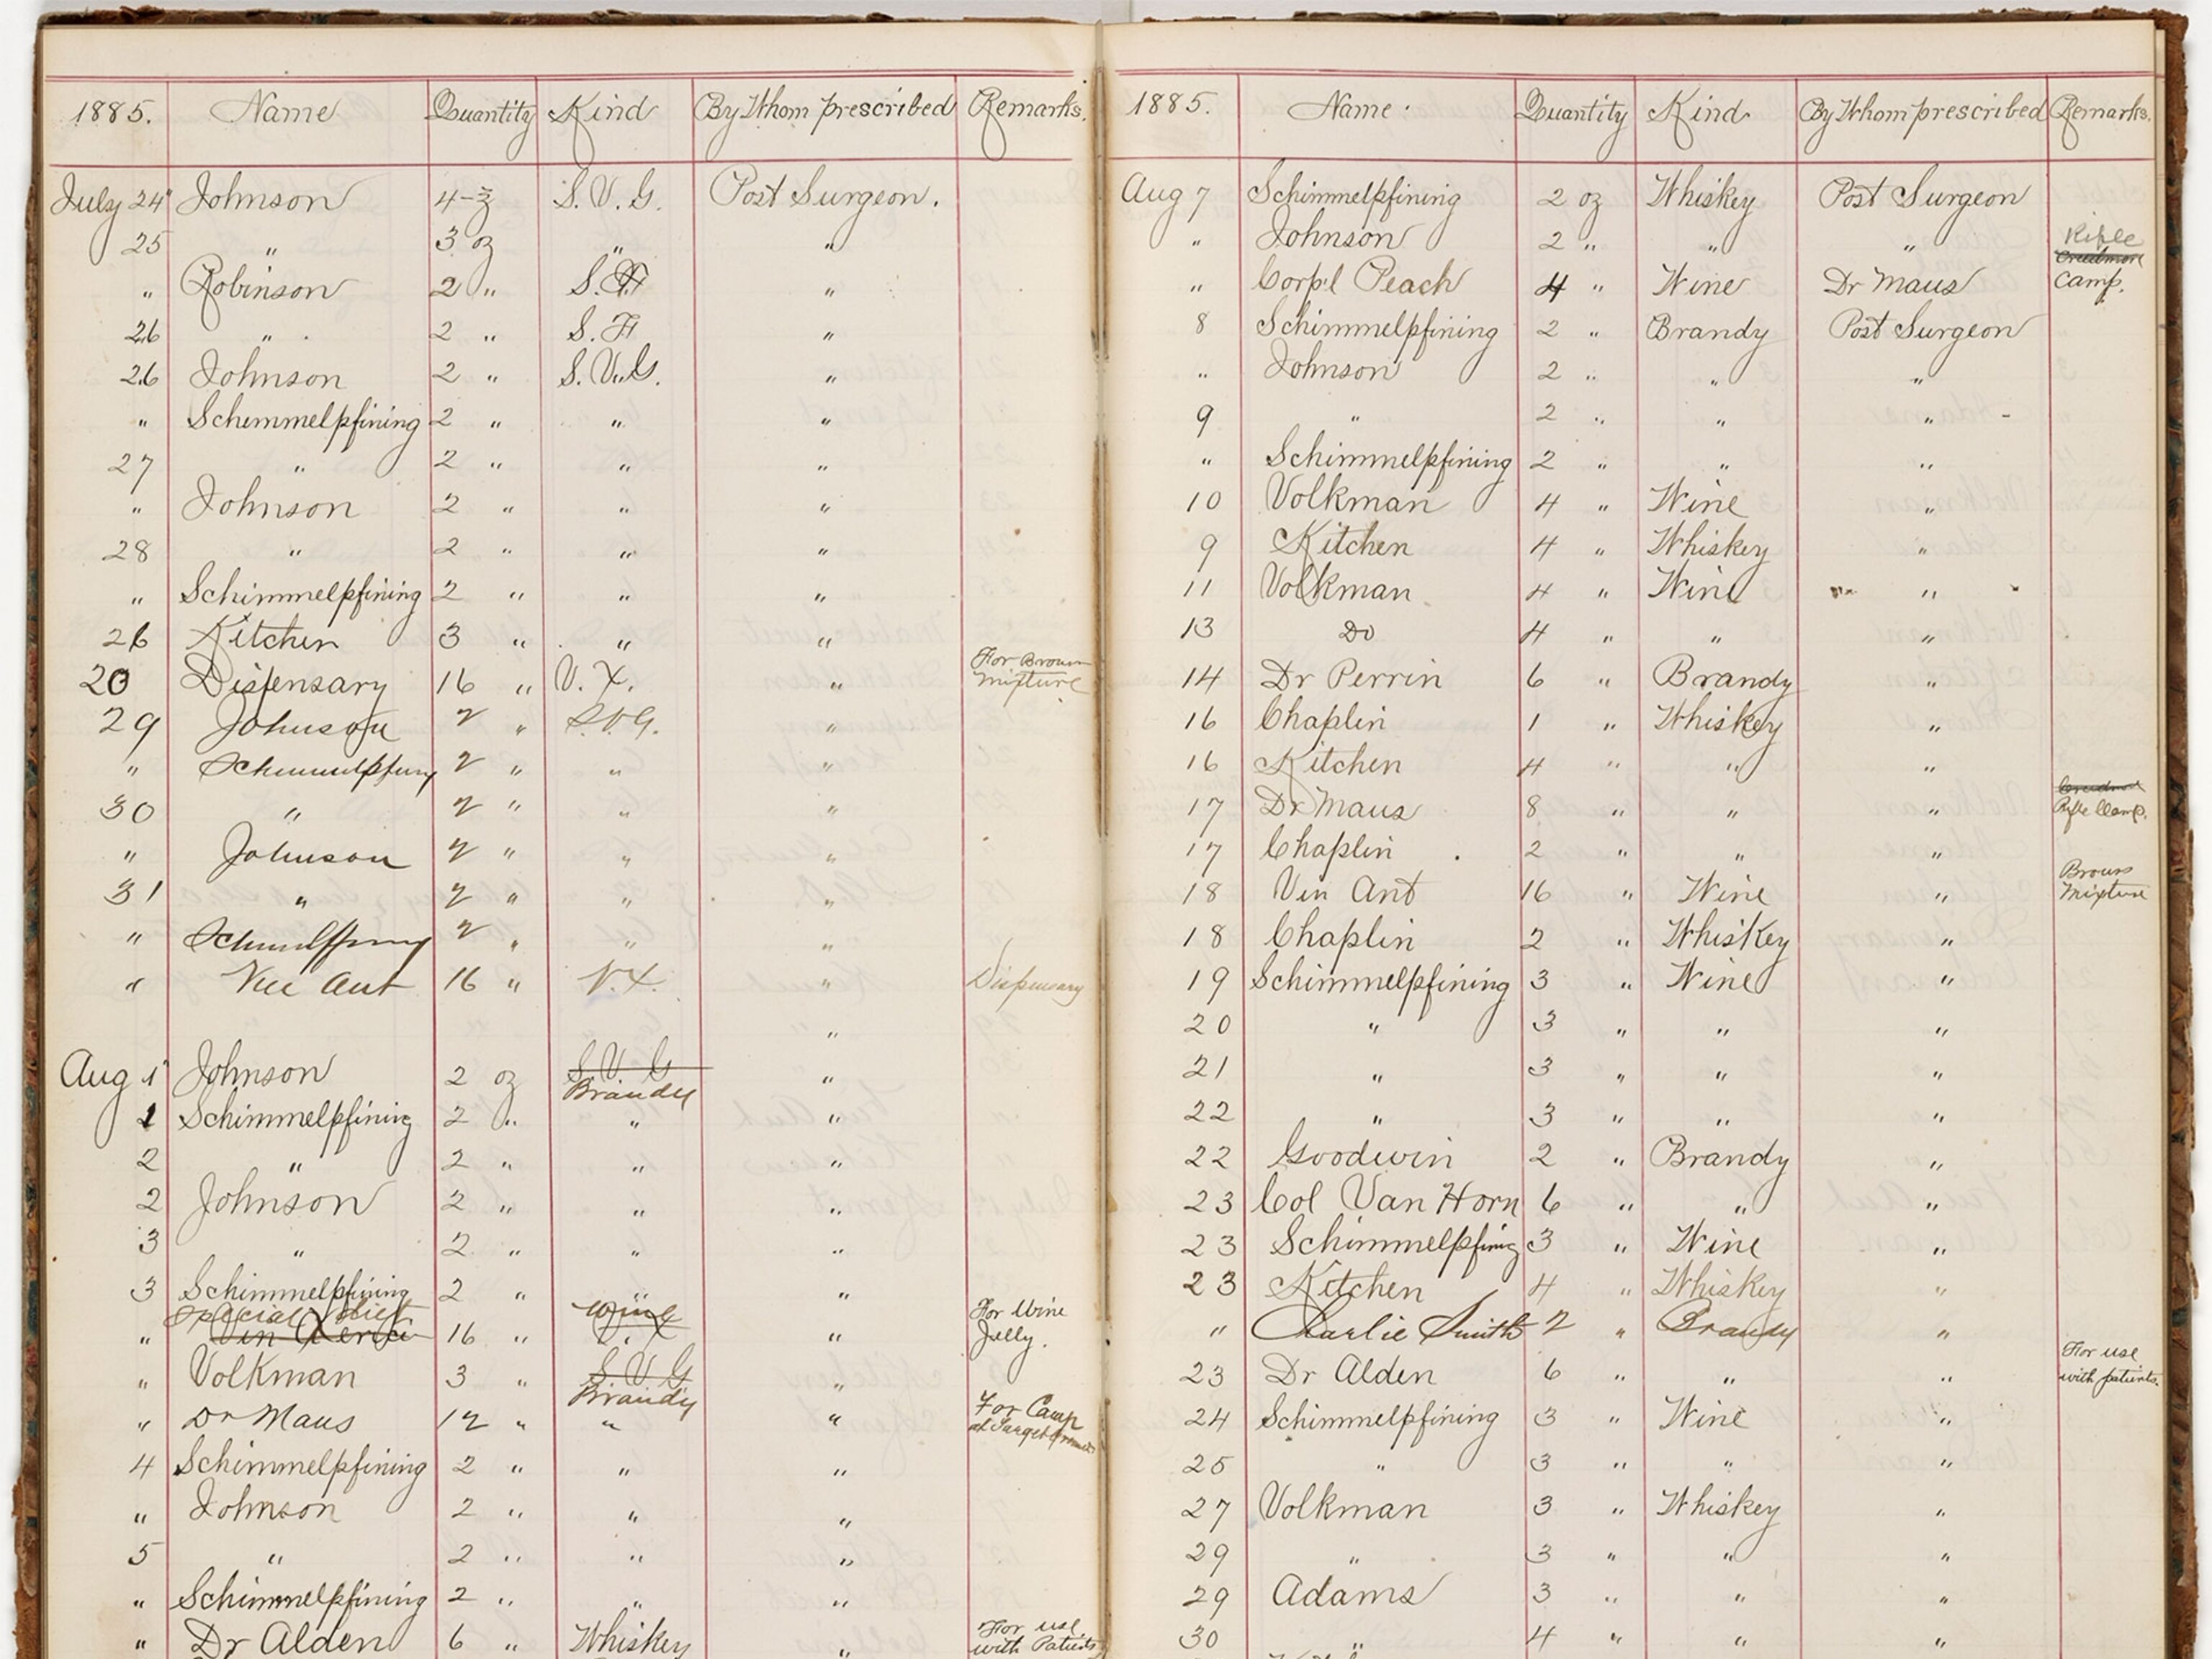 1885. Name Quantity Kind By Whom prescribed Remarks.
July 24" Johnson 4-℥ S.V.G. Post Surgeon.
25 " 3 oz " "
" Robinson 2 " S. "
26 " 2 " S.F "
26 Johnson 2 " S.V.G. "
" Schemmelpfining 2 " " "
27 " 2 " " "
" Johnson 2 " " "
28 " 2 " " "
" Schimmelpfining 2 " " "
26 Kitchen 3 " " "
20 Dispensary 16 " V.X. " For Brown Mixture
29 Johnson 2 " S.V.G. "
" Schimmelpfining 2 " " "
30 " 2 " " "
" Johnson 2 " " "
31 " 2 " " "
" Schimmelpfining 2 " " "
" Vin Ant 16 " V.X. " Dispensary
"
Aug 1" Johnson 2 oz S.V.G Brandy "
1 Schimmelpfining 2 " " "
2 " 2 " " "
2 Johnson 2 " " "
3 " 2 " " "
3 Schimmelpfining 2 " " "
special diet
" Vin Xerici 16 " Wine V.X " For Wine Jelly.
" Volkman 3 " S.V.G Brandy "
" Dr Maus 12 " " " For Camp at Target
4 Schimmelpfining 2 " " "
" Johnson 2 " " "
5 " 2 " " "
" Schimmelpfining 2 " " "
" Dr Alden 6 " Whiskey " For use with Patients
1885. Name. Quantity Kind By Whom prescribed Remarks.
Aug 7 Schimmelpfining 2 oz Whiskey Post Surgeon
" Johnson 2 " " " Rifle
Creedmore
" Corp'l Peach 4 " Wine Dr Maus Camp.
8 Schimmelpfining 2 " Brandy Post Surgeon
" Johnson 2 " " "
9 " 2 " " "
" Schimmelpfining 2 " " "
10 Volkman 4 " Wine "
9 Kitchen 4 " Whiskey "
11 Volkman 4 " Wine "
13 Do 4 " " "
14 Dr Perrin 6 " Brandy "
16 Chaplin 1 " Whiskey "
16 Kitchen 4 " " "
17 Dr Maus 8 " " " Creedmore Rifle Camp.
17 Chaplin 2 " " "
18 Vin Ant 16 " Wine " Brown Mixture
18 Chaplin 2 " Whiskey "
19 Schimmelpfining 3 " Wine "
20 " 3 " " "
21 " 3 " " "
22 " 3 " " "
22 Goodwin 2 " Brandy "
23 Col Van Horn 6 " " "
23 Schimmelpfinig 3 " Wine "
23 Kitchen 4 " Whiskey "
" Charlie Smith 2 " Brandy "
23 Dr Alden 6 " " " For use with patients.
24 Schimmelpfining 3 " Wine "
25 " 3 " " "
27 Volkman 3 " Whiskey "
29 " 3 " " "
29 Adams 3 " " "
30 " 4 " " "